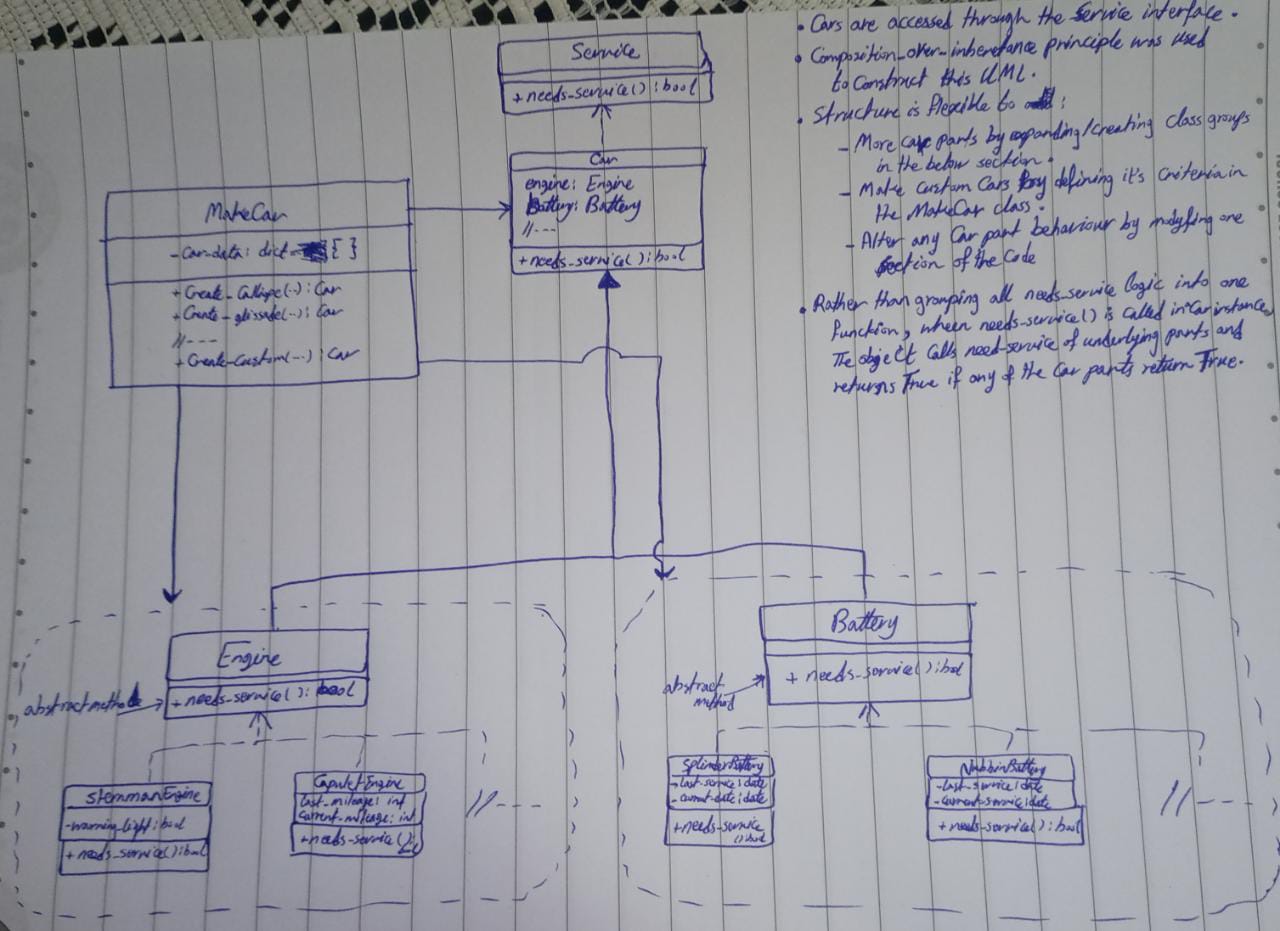 Service
+ needs-service() : bool
Car
engine: Engine
Battery: Battery
//---
+needs-service(): bool
MakeCar
- Car-data: dict = { }
+ Create_Calliope(--): Car
+ Create_glissade(--): Car
//---
+ Create-Custom(---): Car
• Cars are accessed through the Service interface.
• Composition-over-inheretance principle was used
to Construct this UML.
• Structure is flexible to :
- More car parts by expanding/creating class groups
in the below section.
- Make custom Cars by defining it's Criteria in
the MakeCar class.
- Alter any Car part behaviour by modyfing one
Section of the Code
• Rather than grouping all needs-service logic into one
function, when needs-service() is called in Car instance,
The object Calls need-service of underlying parts and
returns True if any of the Car parts return True.
Engine
+ needs-service(): bool
abstract method
Battery
+ needs-service(): bool
abstract
method
SternmanEngine
-warning-light: bool
+ needs-service(): bool
CapuletEngine
last-mileage: int
current-mileage: int
+needs-service():
//---
SplinderBattery
-last-service: date
- current-date: date
+needs-service
(): bool
NubbinBattery
-last-service: date
- current-service: date
+ needs-service(): bool
//---